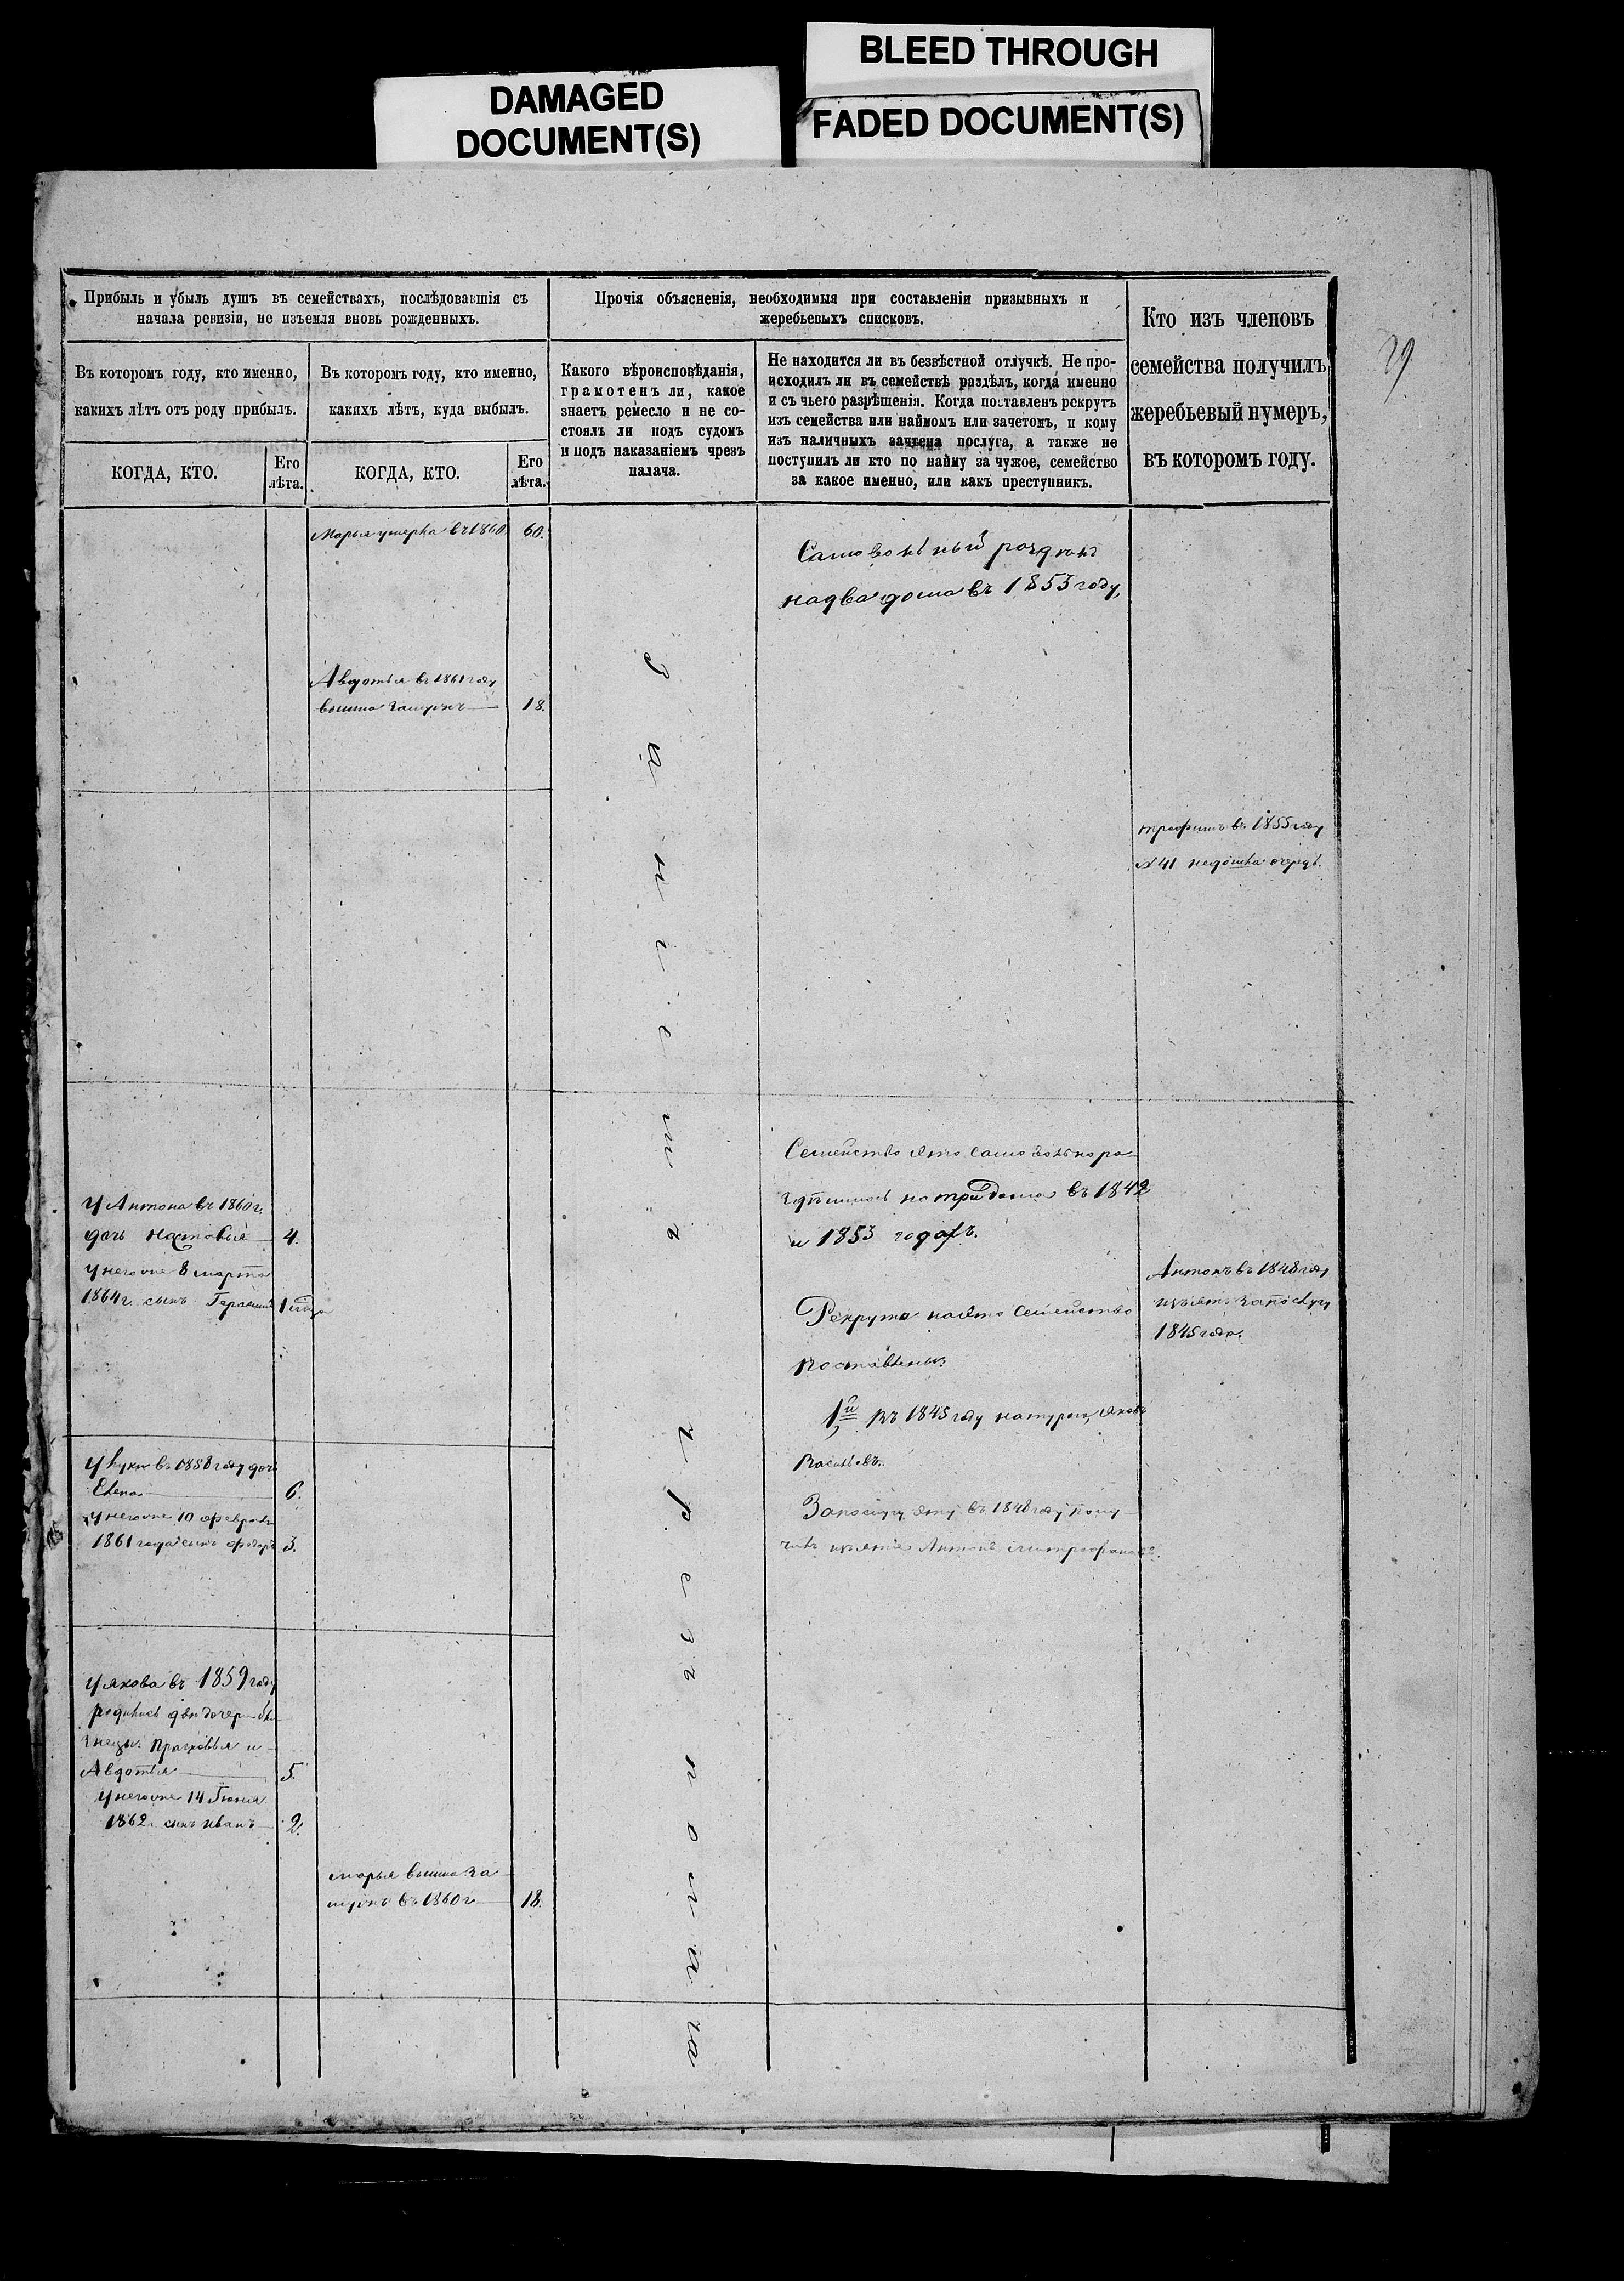 DAMAGED
DOCUMENT(S)
BLEED THROUGH
FADED DOCUMENT(S)
29
Прибыль и убыль душъ въ семействахъ, послѣдовавшія съ
начала ревизіи, не изъемля вновь рожденныхъ.
Въ которомъ году, кто именно,
какихъ лѣтъ отъ роду прибылъ.
КОГДА, КТО.
Его
лѣта.
Въ которомъ году, кто именно,
какихъ лѣтъ, куда выбылъ.
КОГДА, КТО.
Его
лѣта.
Прочія объясненія, необходимыя при составленіи призывныхъ и
жеребьевыхъ списковъ.
Какого вѣроисповѣданія,
грамотенъ ли, какое
знаетъ ремесло и не со-
стоялъ ли подъ судомъ
и подъ наказаніемъ чрезъ
палача.
Не находится ли въ безвѣстной отлучкѣ. Не про-
исходилъ ли въ семействѣ раздѣлъ, когда именно
и съ чьего разрѣшенія. Когда поставленъ рекрутъ
изъ семейства или наймомъ или зачетомъ, и кому
изъ наличныхъ зачтена послуга, а также не
поступилъ ли кто по найму за чужое, семейство
за какое именно, или какъ преступникъ.
Кто изъ членовъ
семейства получилъ
жеребьевый нумеръ,
въ которомъ году.
Марья умерла въ 1860. 60.
Авдотья въ 1861 году
вышла замужъ 18.
Самовольный раздѣлъ
на два дома въ 1853 году,
въ 1855 году
№ 41 недошла очередь.
у Антона въ 1860 г.
дочь Настасья 4.
у него же 8 марта
1864 г. сынъ Герасимъ 1 года
Семейство это самовольно ра-
здѣлилось на три дома въ 1842
и 1853 годахъ.
Рекрута на это семейство
поставлены:
1й въ 1845 году натурою, Яковъ
Васильевъ.
За послугу эту въ 1848 году полу-
чилъ изъятіе Антонъ
Антонъ въ 1848 году
изъятъ за послугу
1845 года.
у Луки въ 1858 году дочь
Елена 6.
у него же 10 февраля
1861 года сынъ Федоръ 3.
у Якова въ 1859 году
родились двѣ дочери бли-
знецы: Прасковья и
Авдотья 5.
у него же 14 Іюня
1862 г. сынъ Иванъ 2.
Марья вышла за-
мужъ въ 1860 г. 18.